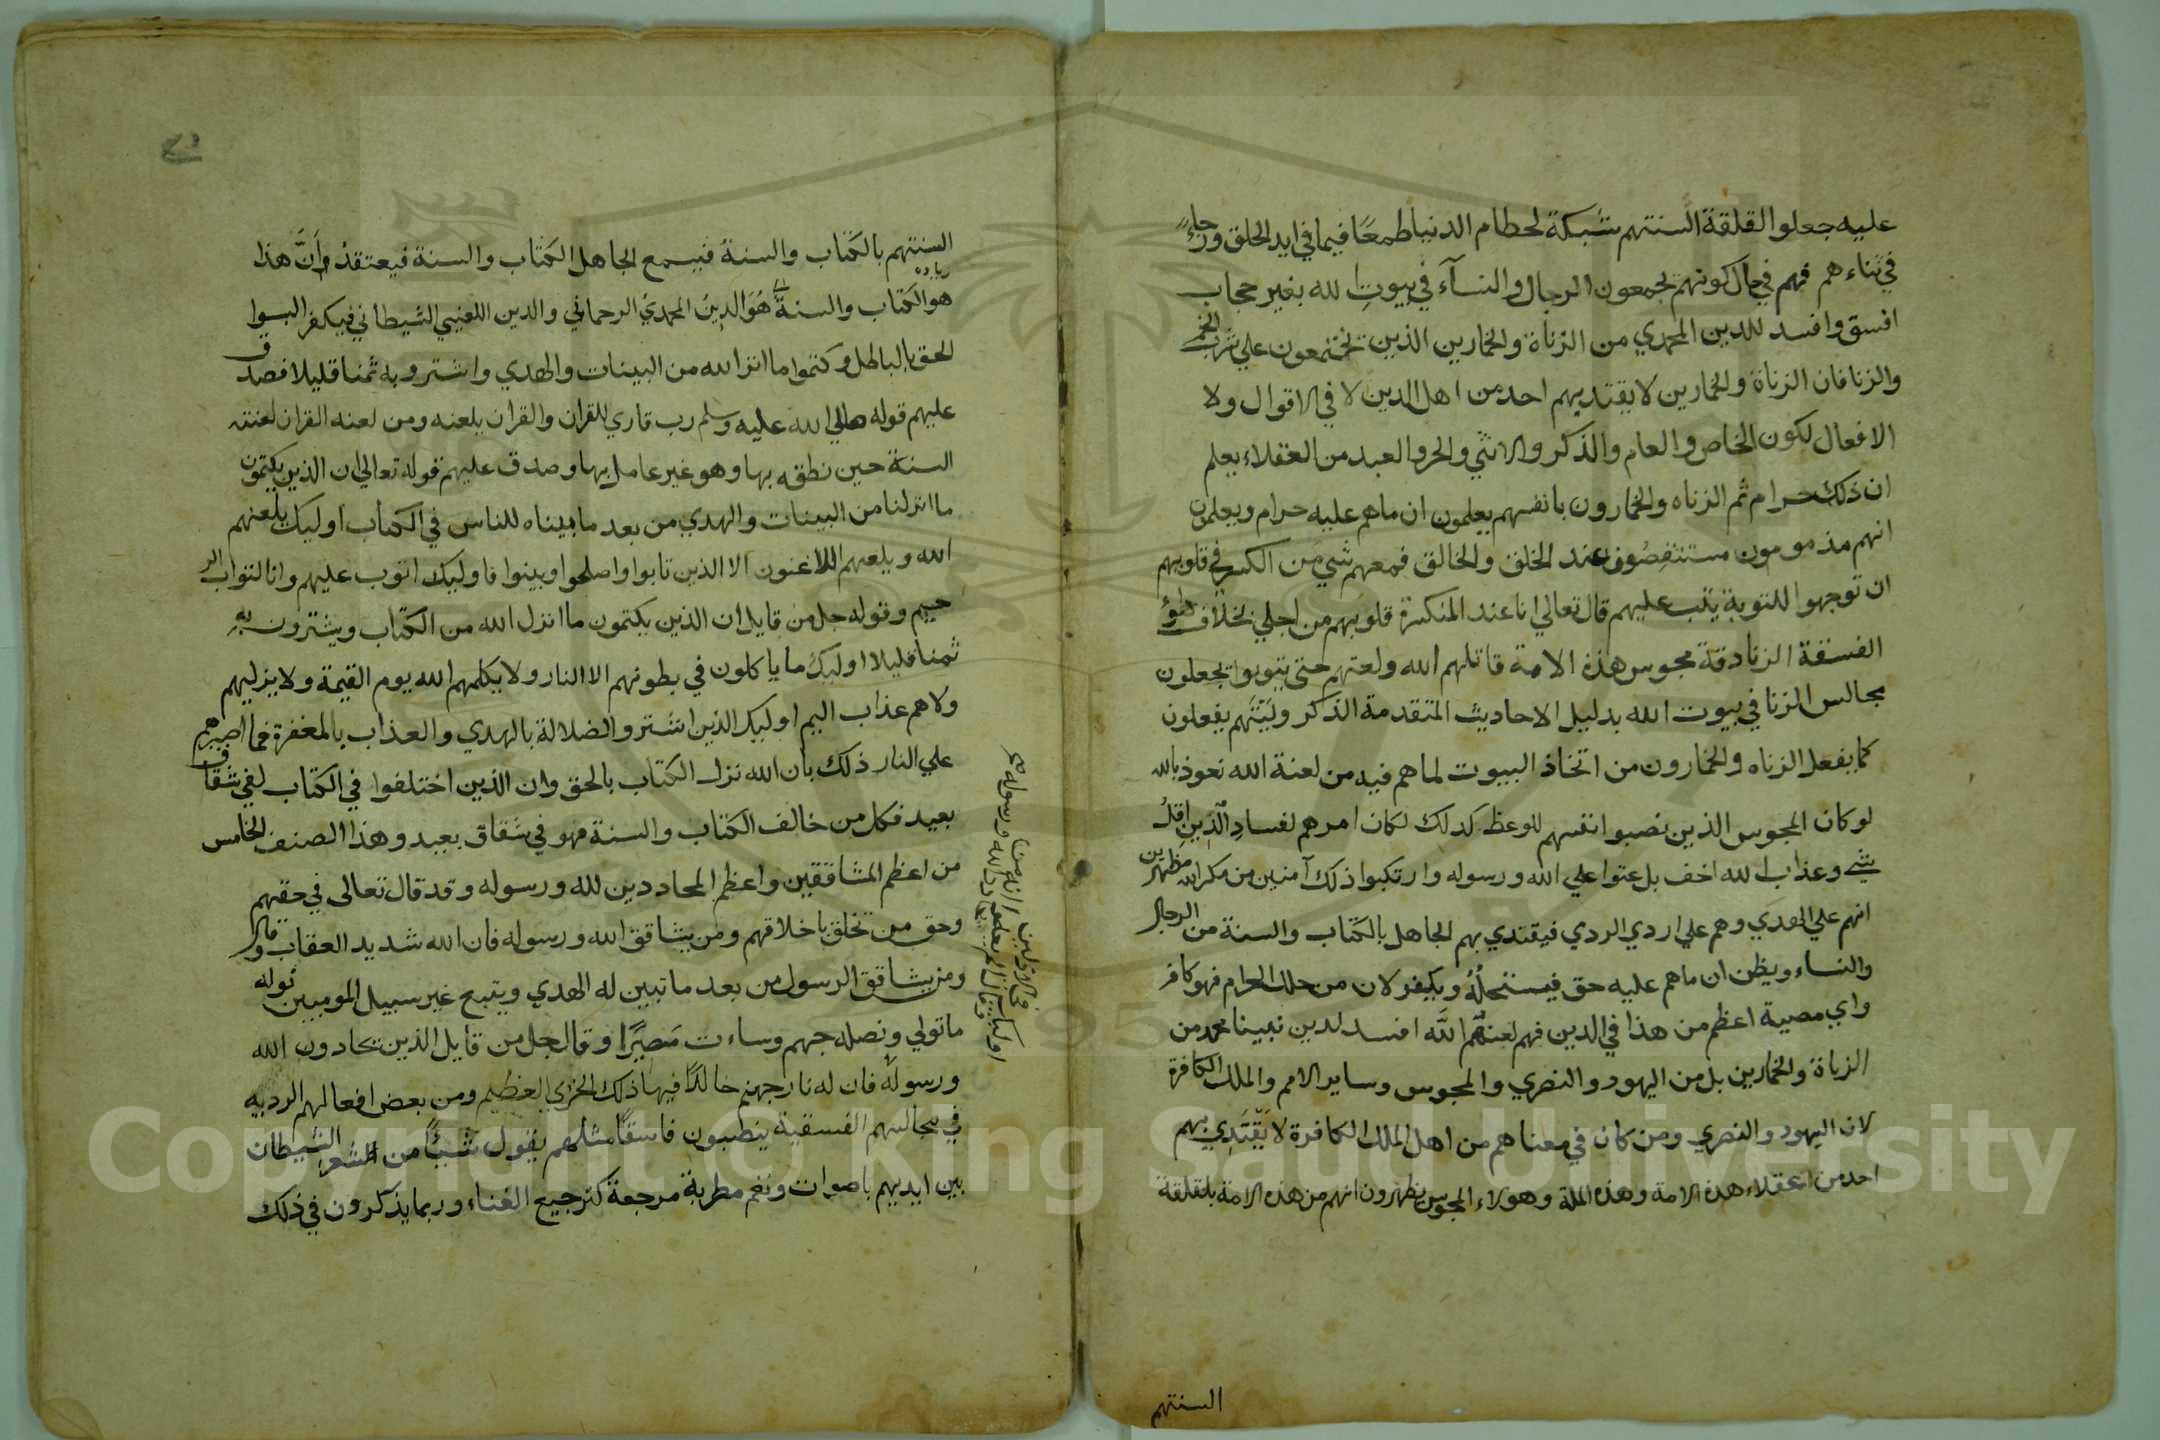 عليه جعلوا القلقة السنتهم شبكة لحطام الدنيا طمعًا فيما في ايد الخلق وجاءً
في ثناءهم فهم في حال كونهم يجمعون الرجال والنسآء في بيوت الله بغير حجاب
افسق وافسد للدين المحمدي من الزناة والخمارين الذين يجتمعون علي شرب الخمر
والزنا فان الزناة والخمارين لا يقتد بهم احد من اهل الدين لا في الاقوال ولا
الافعال لكون الخاص والعام والذكر والانثي والحر والعبد من العقلاء يعلم
ان ذلك حرام ثم الزناه والخمارون بانفسهم يعلمون ان ماهم عليه حرام ويعلمون
انهم مذمومون مستنقصون عند الخلق والخالق فمعهم شي من الكسر في قلوبهم
ان توجهوا للتوبة يتب عليهم قال تعالي انا عند المنكسرة قلوبهم من اجلي بخلاف هؤلاء
الفسقة الزنادقة مجوس هذه الامة قاتلهم الله ولعنهم حتى يتوبوا يجعلون
مجالس الزنا في بيوت الله بدليل الاحاديث المتقدمة الذكر وليتهم يفعلون
كما يفعل الزناه والخمارون من اتخاذ البيوت لما هم فيه من لعنة الله نعوذ بالله
لو كان المجوس الذين نصبوا انفسهم للوعظ كذلك لكان امرهم لفساد الدين اقل
شي وعذاب الله اخف بل عتوا علي الله ورسوله وارتكبوا ذلك آمنين من مكر الله مظهرين
انهم علي الهدي وهم علي اردي الردي فيقتدي بهم الجاهل بالكتاب والسنة من الرجال
والنساء ويظن ان ماهم عليه حق فيستحله ويكفر لان من حلل الحرام فهو كافر
واي مصيبة اعظم من هذا في الدين فهم لعنهم الله افسد لدين نبينا محمد من
الزناة والخمارين بل من اليهود والنصري والمجوس وساير الامم والملل الكافرة
لان اليهود والنصري ومن كان في معناهم من اهل الملل الكافرة لا يقتدي بهم
احد من العقلاء هذه الامة وهذه الملة وهولاء المجوس يظهرون انهم من هذه الامة بلقلقة
السنتهم
السنتهم بالكتاب والسنة فيسمع الجاهل الكتاب والسنة فيعتقد وأنَّ هذا
هو الكتاب والسنة هو الدين المحمدي الرحماني والدين اللعيني الشيطاني فيكفر البسوا
الحق بالباطل وكتموا ما انزل الله من البينات والهدي واشتروا به ثمنا قليلا فصدق
عليهم قوله صلي الله عليه وسلم رب قاري للقران والقران يلعنه ومن لعنه القران لعنته
السنة حين نطقه بها وهو غير عامل بها وصدق عليهم قوله تعالي ان الذين يكتمون
ما انزلنا من البينات والهدي من بعد ما بيناه للناس في الكتاب اوليك يلعنهم
الله ويلعنهم اللاعنون الا الذين تابوا واصلحوا وبينوا فاوليك اتوب عليهم وانا التواب الر
حيم وقوله جل من قايل ان الذين يكتمون ما انزل الله من الكتاب ويشترون به
ثمنا قليلا اوليك ما ياكلون في بطونهم الا النار ولا يكلمهم الله يوم القيمة ولا يزكيهم
ولاهم عذاب اليم اوليك الذين اشتروا الضلالة بالهدي والعذاب بالمغفرة فما اصبرهم
علي النار ذلك بان الله نزل الكتاب بالحق وان الذين اختلفوا في الكتاب لفي شقاق
بعيد فكل من خالف الكتاب والسنة فهو في شقاق بعيد وهذا الصنف الخامس
من اعظم المشاققين واعظم المحاددين لله ورسوله وقد قال تعالى في حقهم
وحق من تخلق باخلاقهم ومن يشاقق الله ورسوله فان الله شديد العقاب وقال
ومن يشاقق الرسول من بعد ما تبين له الهدي ويتبع غير سبيل المومنين نوله
ما تولي ونصله جهنم وساءت مصيرا وقال جل من قايل الذين يحادون الله
ورسوله فان له نار جهنم خالدًا فيها ذلك الخزي العظيم ومن بعض افعالهم الرديه
في مجالسهم الفسقية ينصبون فاسقًا مثلهم يقول شيئًا من الشعر الشيطان
بين ايديهم باصوات ونغم مطربة مرجعة كترجيع الغناء وربما يذكرون في ذلك
Copyright © King Saud University